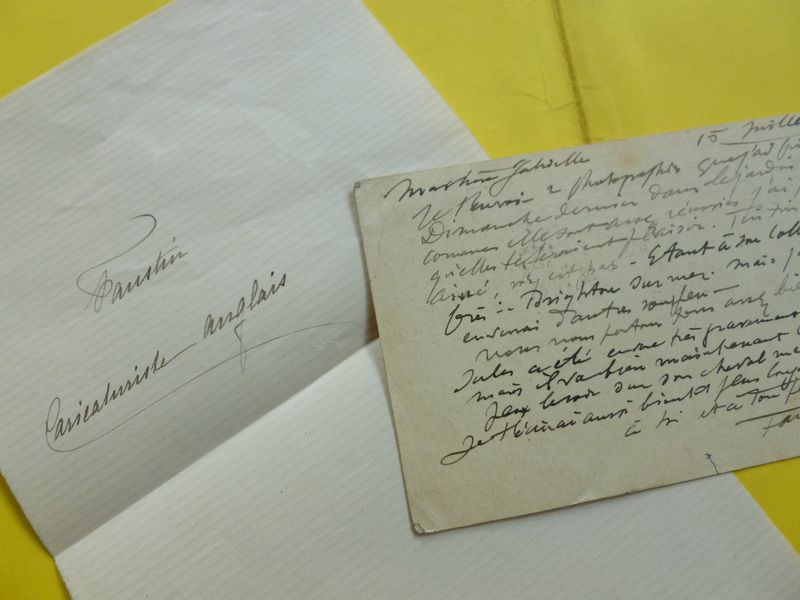 Faustin
Caricaturiste anglais
15 Juille
Ma chère Gabrielle
Je t'envoie 2 photographies que j'ai
Dimanche dernier dans le jardin
comme elles sont assez réussies j'ai
qu'elles te feraient plaisir.
n'y est pas - Etant à son
Brighton sur mer. mais
enverrai d'autres
nous nous portons tous assez
Jules a été encore très gravement
mais il va bien maintenant
sur son cheval
Je t'écrirai aussi bientôt plus
à toi et à tout